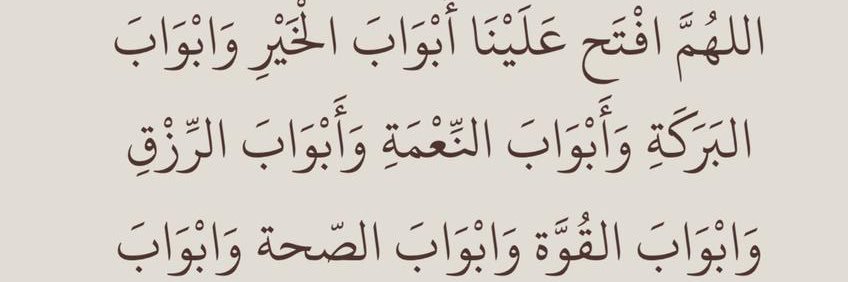 اللهُمَّ افْتَح عَلَيْنَا أَبْوَابَ الْخَيْرِ وَابْوَابَ
البَرَكَةِ وَأَبْوَابَ النِّعْمَةِ وَأَبْوَابَ الرِّزْقِ
وَابْوَابَ القُوَّة وَابْوَابَ الصّحة وَابْوَابَ